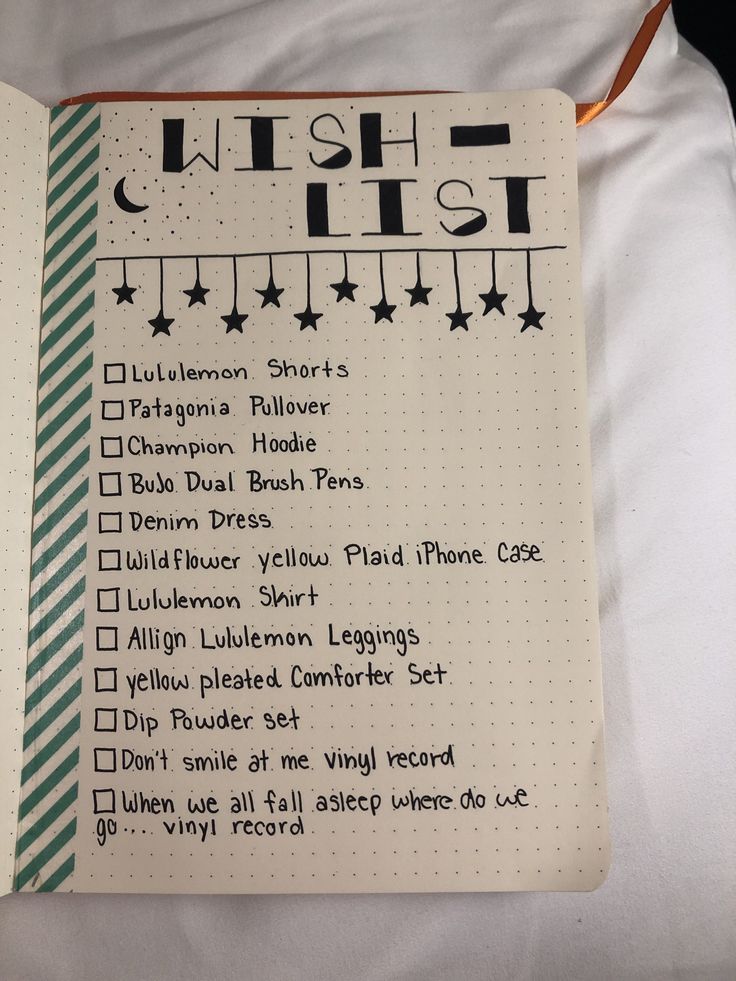 WISH -
LIST
Lululemon Shorts
Patagonia Pullover
Champion Hoodie
BuJo Dual Brush Pens
Denim Dress
Wildflower yellow Plaid iPhone Case
Lululemon Skirt
Allign Lululemon Leggings
yellow pleated Comforter Set
Dip Powder set
Don't smile at me vinyl record
When we all fall asleep where do we
go.... vinyl record